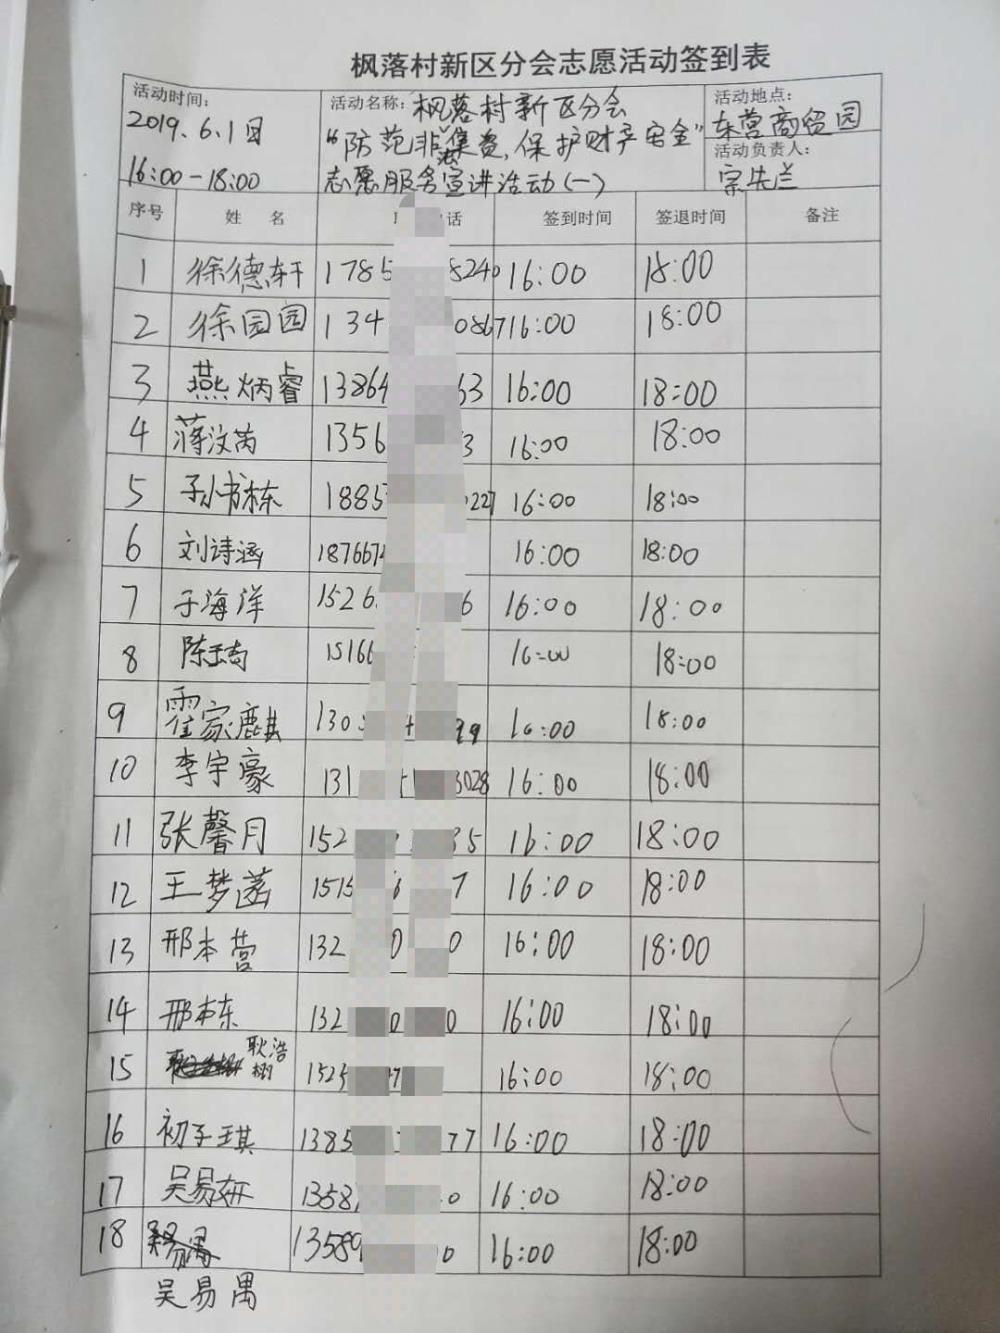 枫落村新区分会志愿活动签到表
活动时间：
2019.6.1日
16:00-18:00
活动名称：枫落村新区分会
"防范非法集资,保护财产安全"
志愿服务宣讲活动(一)
活动地点：
东营商贸园
活动负责人：
序号 姓 名 话 签到时间 签退时间 备注
1 徐德轩 1785 8240 16:00 18:00
2 徐园园 134 0867 16:00 18:00
3 燕炳睿 13864 63 16:00 18:00
4 蒋汶芮 1356 3 16:00 18:00
5 孙书栋 1885 0227 16:00 18:00
6 刘诗涵 1876674 16:00 18:00
7 于海洋 1526 6 16:00 18:00
8 15166 16:00 18:00
9 霍家麒 130 99 16:00 18:00
10 李宇豪 131 3028 16:00 18:00
11 张馨月 152 35 16:00 18:00
12 王梦菡 1515 6 7 16:00 18:00
13 邢本营 132 0 0 16:00 18:00
14 邢本东 132 0 0 16:00 18:00
15 耿浩树 1525 16:00 18:00
16 初子琪 1385 77 16:00 18:00
17 吴易妍 1358 0 16:00 18:00
18 13589 0 16:00 18:00
吴易禺